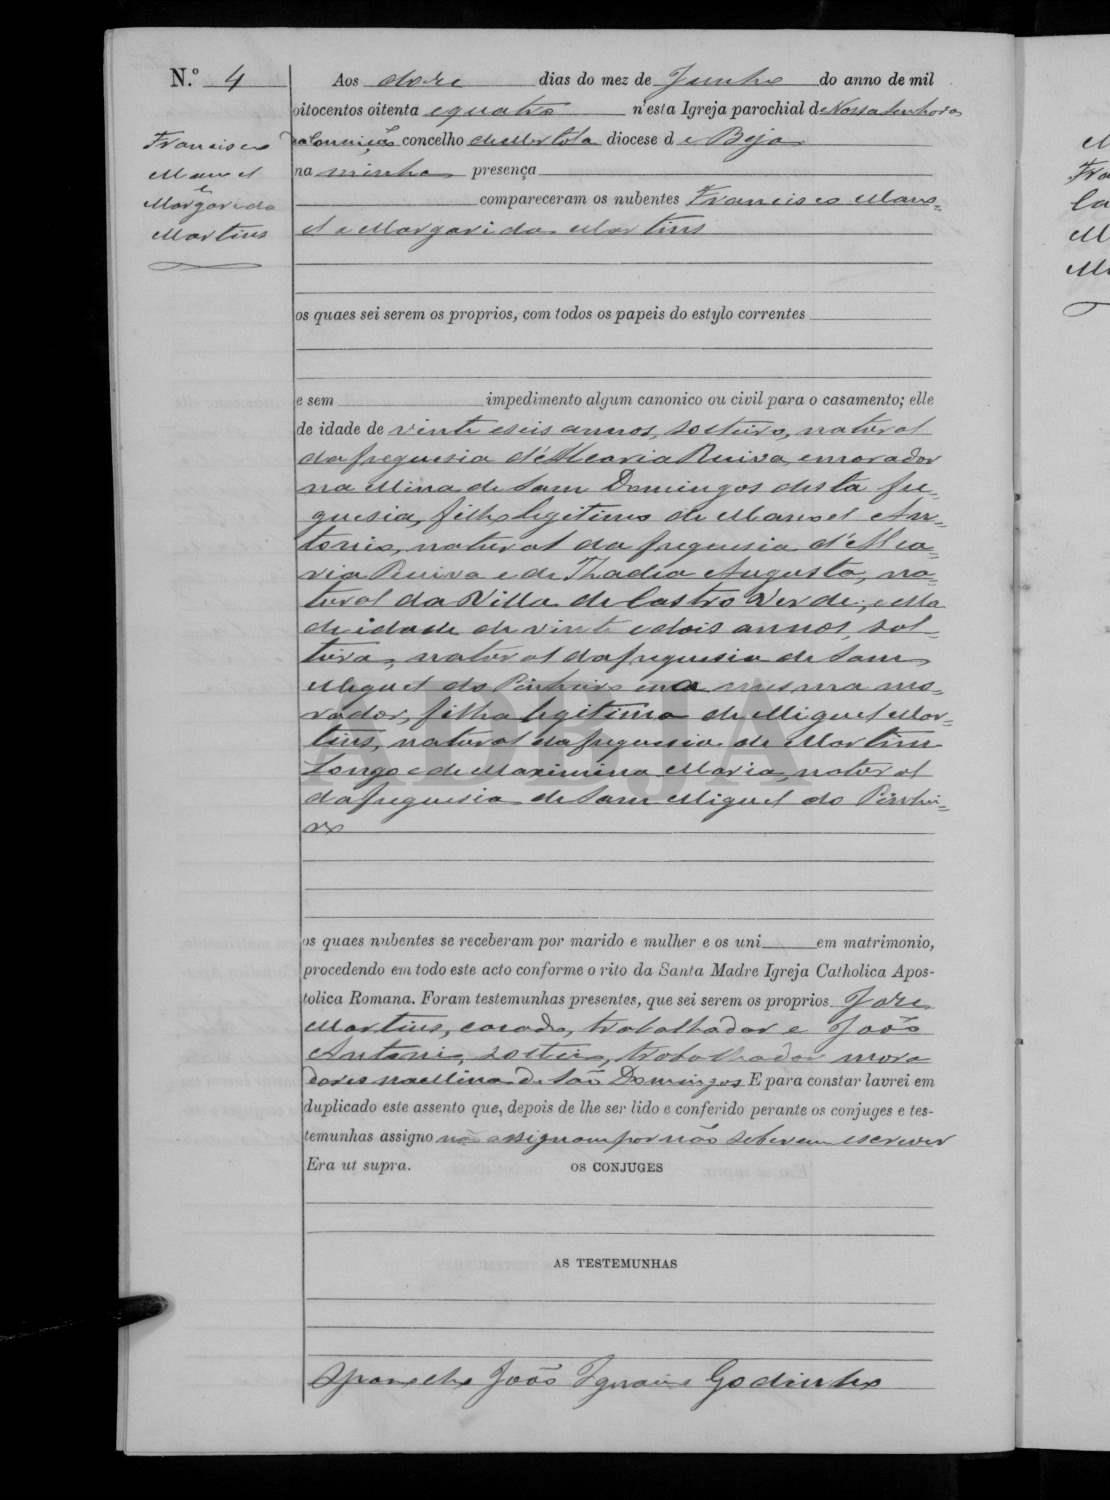 N.º 4
Francisco
Manoel
e
Margarida
Martins
Aos doze dias do mez de Junho do anno de mil
oitocentos oitenta e quatro n'esta Igreja parochial de Nossa Senhora
da Conceição concelho de Mertola diocese d e Beja
na minha presença
compareceram os nubentes Francisco Mano=
el e Margarida Martins
os quaes sei serem os proprios, com todos os papeis do estylo correntes
e sem impedimento algum canonico ou civil para o casamento; elle
de idade de vinte e seis annos, solteiro, natural
da freguesia d'Alcaria Ruiva, e morador
na Mina de Sam Domingos desta fre=
guesia, filho legitimo de Manoel An=
tonio, natural da freguesia d'Alca=
ria Ruiva e de Thadea Augusta, na=
tural da Villa de Castro Verde; e ella
de idade de vinte e dois annos, sol=
teira, natural da freguesia de Sam
Miguel do Pinheiro e na mesma mo=
rador, filha legitima de Miguel Mar=
tins, natural da freguesia de Martim
Longo e de Maximina Maria, natural
da freguesia de Sam Miguel do Pinhei=
ro
os quaes nubentes se receberam por marido e mulher e os uni em matrimonio,
procedendo em todo este acto conforme o rito da Santa Madre Igreja Catholica Apos-
tolica Romana. Foram testemunhas presentes, que sei serem os proprios Jose
Martins, casado, trabalhador e João
Antonio, solteiro, trabalhador mora
dores na Mina de São Domingos E para constar lavrei em
duplicado este assento que, depois de lhe ser lido e conferido perante os conjuges e tes-
temunhas assigno não assignam por não saberem escrever
Era ut supra. OS CONJUGES
AS TESTEMUNHAS
João Ignacio Godinho
ADBJA
M
Fra
la
M
Ma